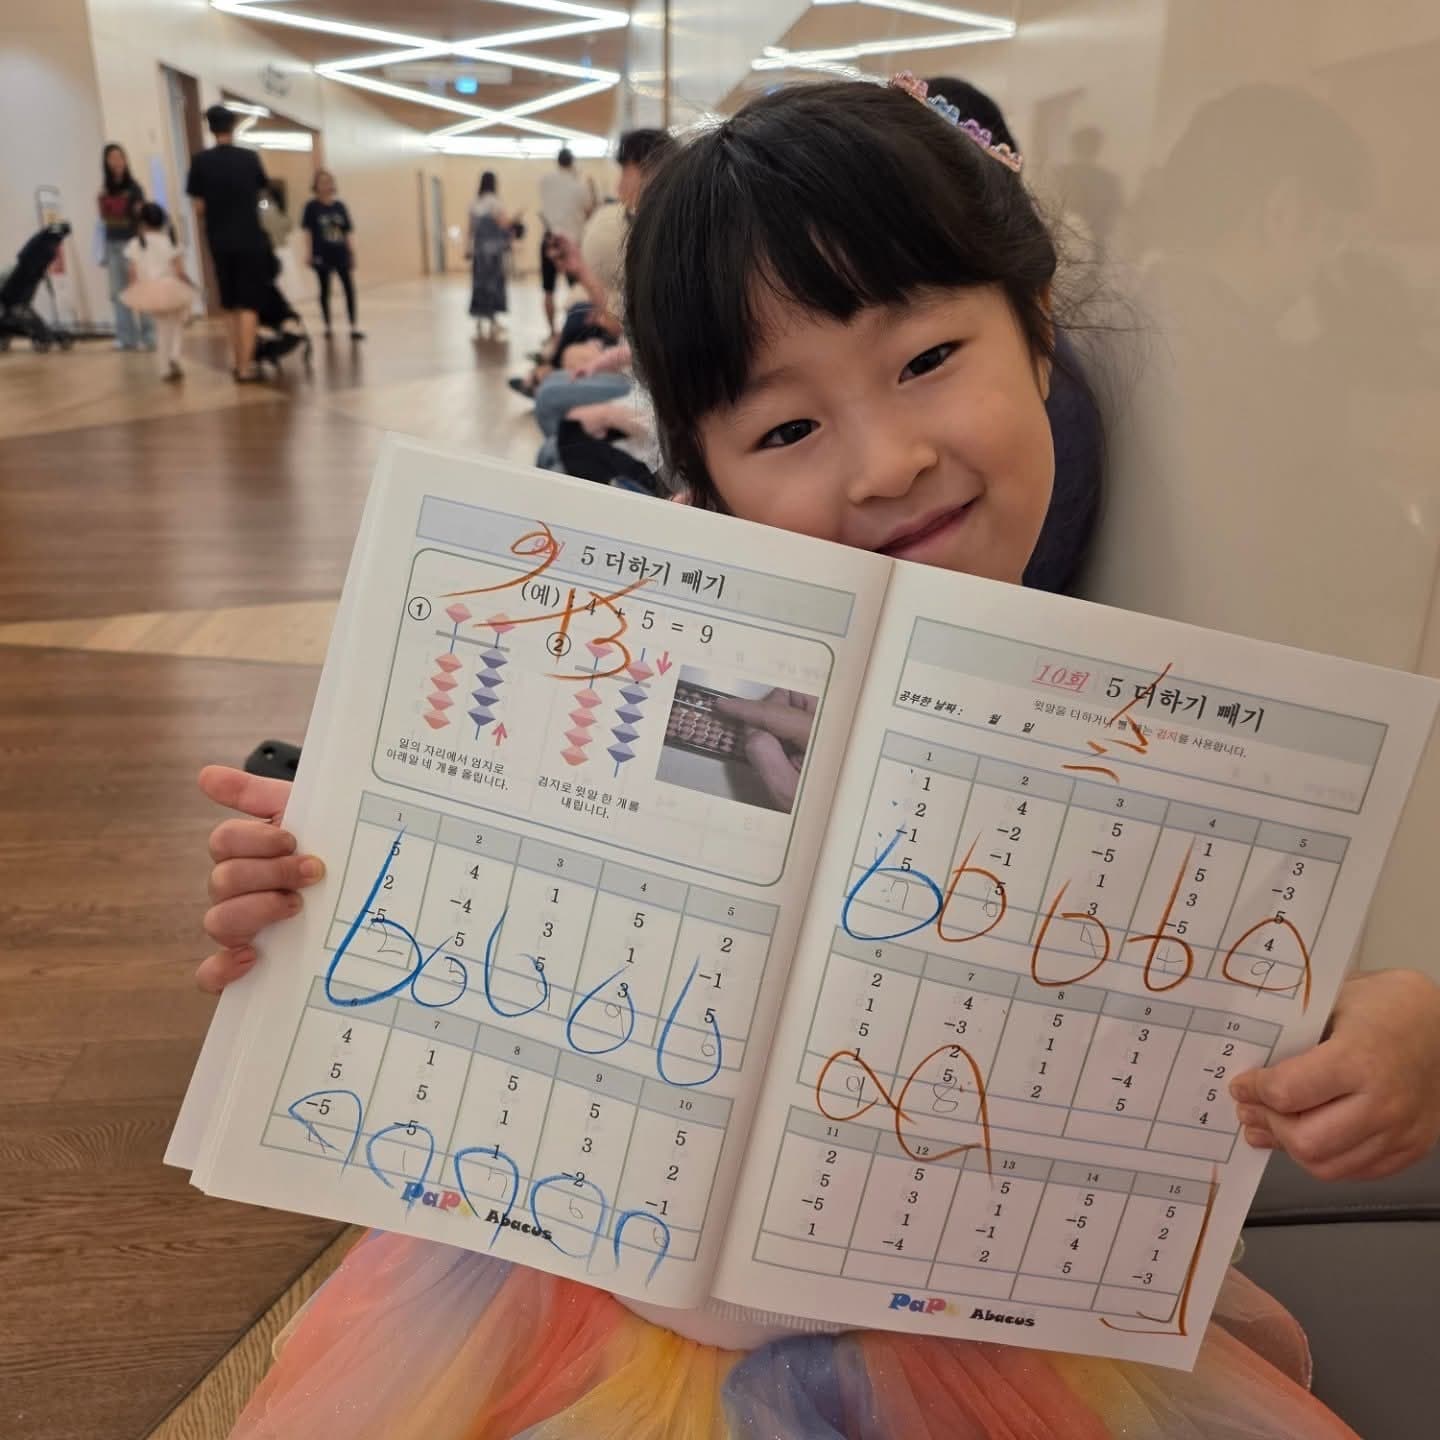 9회 5 더하기 빼기
(예) : 4 + 5 = 9
① ②
일의 자리에서 엄지로
아래알 네 개를 올립니다.
검지로 윗알 한 개를
내립니다.
1 2 3 4 5
5 4 1 5 2
2 -4 3 1 -1
-5 5 5 3 5
2 5 9 9 6
6 7 8 9 10
4 1 5 5 5
5 5 1 3 2
-5 -5 1 -2 -1
4 1 7 6 6
PaPa Abacus
10회 5 더하기 빼기
윗알을 더하거나 뺄 때는 검지를 사용합니다.
공부한 날짜 : 월 일
1 2 3 4 5
1 4 5 1 3
2 -2 -5 5 -3
-1 -1 1 3 5
5 5 3 -5 4
7 6 4 4 9
6 7 8 9 10
2 4 5 3 2
1 -3 1 1 -2
5 2 1 -4 5
1 5 2 5 4
9 8
11 12 13 14 15
2 5 5 5 5
5 3 1 -5 2
-5 1 -1 4 1
1 -4 2 5 -3
PaPa Abacus